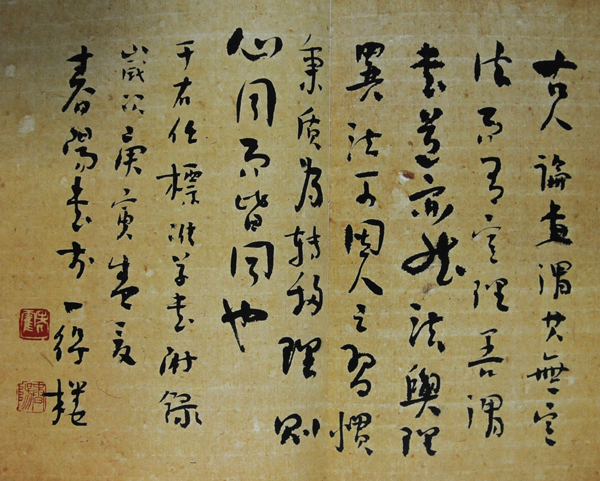 古人論書謂其無定
法而有定理吾謂
書道亦然法與理
異法可因人之習慣
秉質為轉移理則
心同而皆同也
于右任標準草書附錄
歲次庚寅孟夏
春書於一得樓